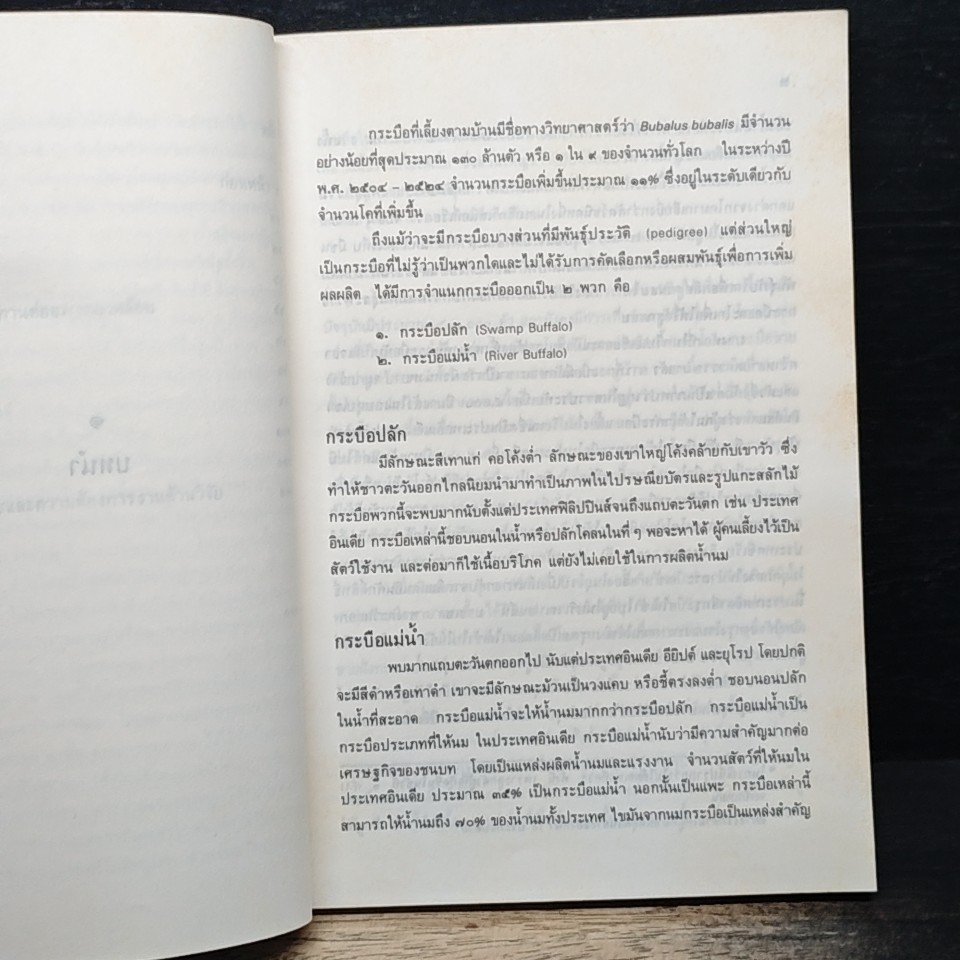 กระบือที่เลี้ยงตามบ้านมีชื่อทางวิทยาศาสตร์ว่า Bubalus bubalis มีจำนวน
อย่างน้อยที่สุดประมาณ ๑๓๐ ล้านตัว หรือ ๑ ใน ๙ ของจำนวนทั่วโลก ในระหว่างปี
พ.ศ. ๒๕๐๔ - ๒๕๒๔ จำนวนกระบือเพิ่มขึ้นประมาณ ๑๑% ซึ่งอยู่ในระดับเดียวกับ
จำนวนโคที่เพิ่มขึ้น
ถึงแม้ว่าจะมีกระบือบางส่วนที่มีพันธุ์ประวัติ (pedigree) แต่ส่วนใหญ่
เป็นกระบือที่ไม่รู้ว่าเป็นพวกใดและไม่ได้รับการคัดเลือกหรือผสมพันธุ์เพื่อการเพิ่ม
ผลผลิต ได้มีการจำแนกกระบือออกเป็น ๒ พวก คือ
๑. กระบือปลัก (Swamp Buffalo)
๒. กระบือแม่น้ำ (River Buffalo)
กระบือปลัก
มีลักษณะสีเทาแก่ คอโค้งต่ำ ลักษณะของเขาใหญ่โค้งคล้ายกับเขาวัว ซึ่ง
ทำให้ชาวตะวันออกไกลนิยมนำมาทำเป็นภาพในไปรษณียบัตรและรูปแกะสลักไม้
กระบือพวกนี้จะพบมากนับตั้งแต่ประเทศฟิลิปปินส์จนถึงแถบตะวันตก เช่น ประเทศ
อินเดีย กระบือเหล่านี้ชอบนอนในน้ำหรือปลักโคลนในที่ ๆ พอจะหาได้ ผู้คนเลี้ยงไว้เป็น
สัตว์ใช้งาน และต่อมาก็ใช้เนื้อบริโภค แต่ยังไม่เคยใช้ในการผลิตน้ำนม
กระบือแม่น้ำ
พบมากแถบตะวันตกออกไป นับแต่ประเทศอินเดีย อียิปต์ และยุโรป โดยปกติ
จะมีสีดำหรือเทาดำ เขาจะมีลักษณะม้วนเป็นวงแคบ หรือชี้ตรงลงต่ำ ชอบนอนปลัก
ในน้ำที่สะอาด กระบือแม่น้ำจะให้น้ำนมมากกว่ากระบือปลัก กระบือแม่น้ำเป็น
กระบือประเภทที่ให้นม ในประเทศอินเดีย กระบือแม่น้ำนับว่ามีความสำคัญมากต่อ
เศรษฐกิจของชนบท โดยเป็นแหล่งผลิตน้ำนมและแรงงาน จำนวนสัตว์ที่ให้นมใน
ประเทศอินเดีย ประมาณ ๓๕% เป็นกระบือแม่น้ำ นอกนั้นเป็นแพะ กระบือเหล่านี้
สามารถให้น้ำนมถึง ๗๐% ของน้ำนมทั้งประเทศ ไขมันจากนมกระบือเป็นแหล่งสำคัญ